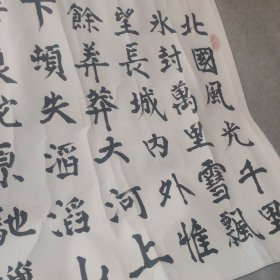 北國風光千里
氷封萬里雪飄
望長城内外惟
餘莽莽大河上
下頓失滔滔山
原馳